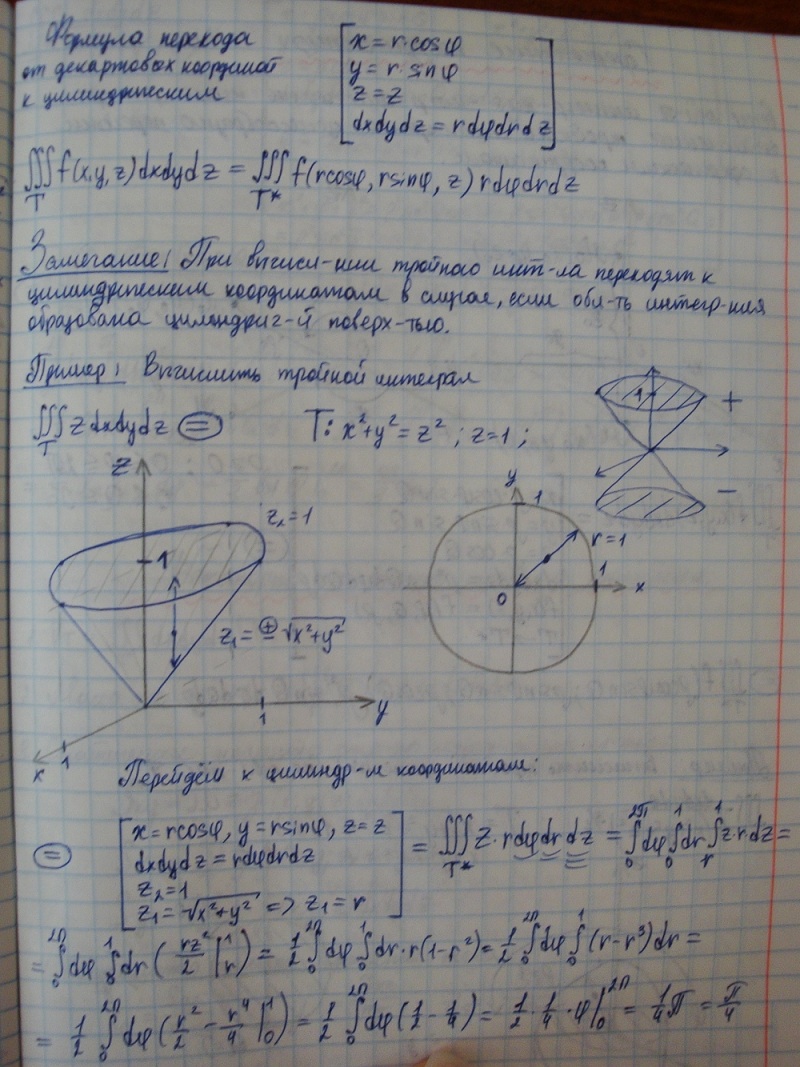 Формула перехода
от декартовых координат
к цилиндрическим
x = r·cosφ
y = r·sinφ
z = z
dxdydz = rdφdrdz
∭_T f(x,y,z)dxdydz = ∭_T* f(rcosφ, rsinφ, z) rdφdrdz
Замечание! При вычисл-нии тройного инт-ла переходят к
цилиндрическим координатам в случае, если обл-ть интегр-ния
образована цилиндрич-й поверх-тью.
Пример! Вычислить тройной интеграл
∭_T z dxdydz ⊜ T: x²+y² = z²; z=1;
1
+
−
z
z₂=1
1
z₁ = ±√(x²+y²)
y
1
x
1
y
1
r=1
1
x
0
Перейдём к цилиндр-м координатам:
⊜ [x = rcosφ, y = rsinφ, z = z
dxdydz = rdφdrdz
z₂=1
z₁=√(x²+y²) => z₁=r] = ∭_T* z·rdφdrdz = ∫₀^2π dφ ∫₀^1 dr ∫_r^1 z·r dz =
= ∫₀^2π dφ ∫₀^1 dr ( rz²/2 |_r^1 ) = 1/2 ∫₀^2π dφ ∫₀^1 dr·r(1-r²) = 1/2 ∫₀^2π dφ ∫₀^1 (r-r³)dr =
= 1/2 ∫₀^2π dφ ( r²/2 - r⁴/4 |₀^1 ) = 1/2 ∫₀^2π dφ (1/2 - 1/4) = 1/2 · 1/4 · φ |₀^2π = 1/4 π = π/4